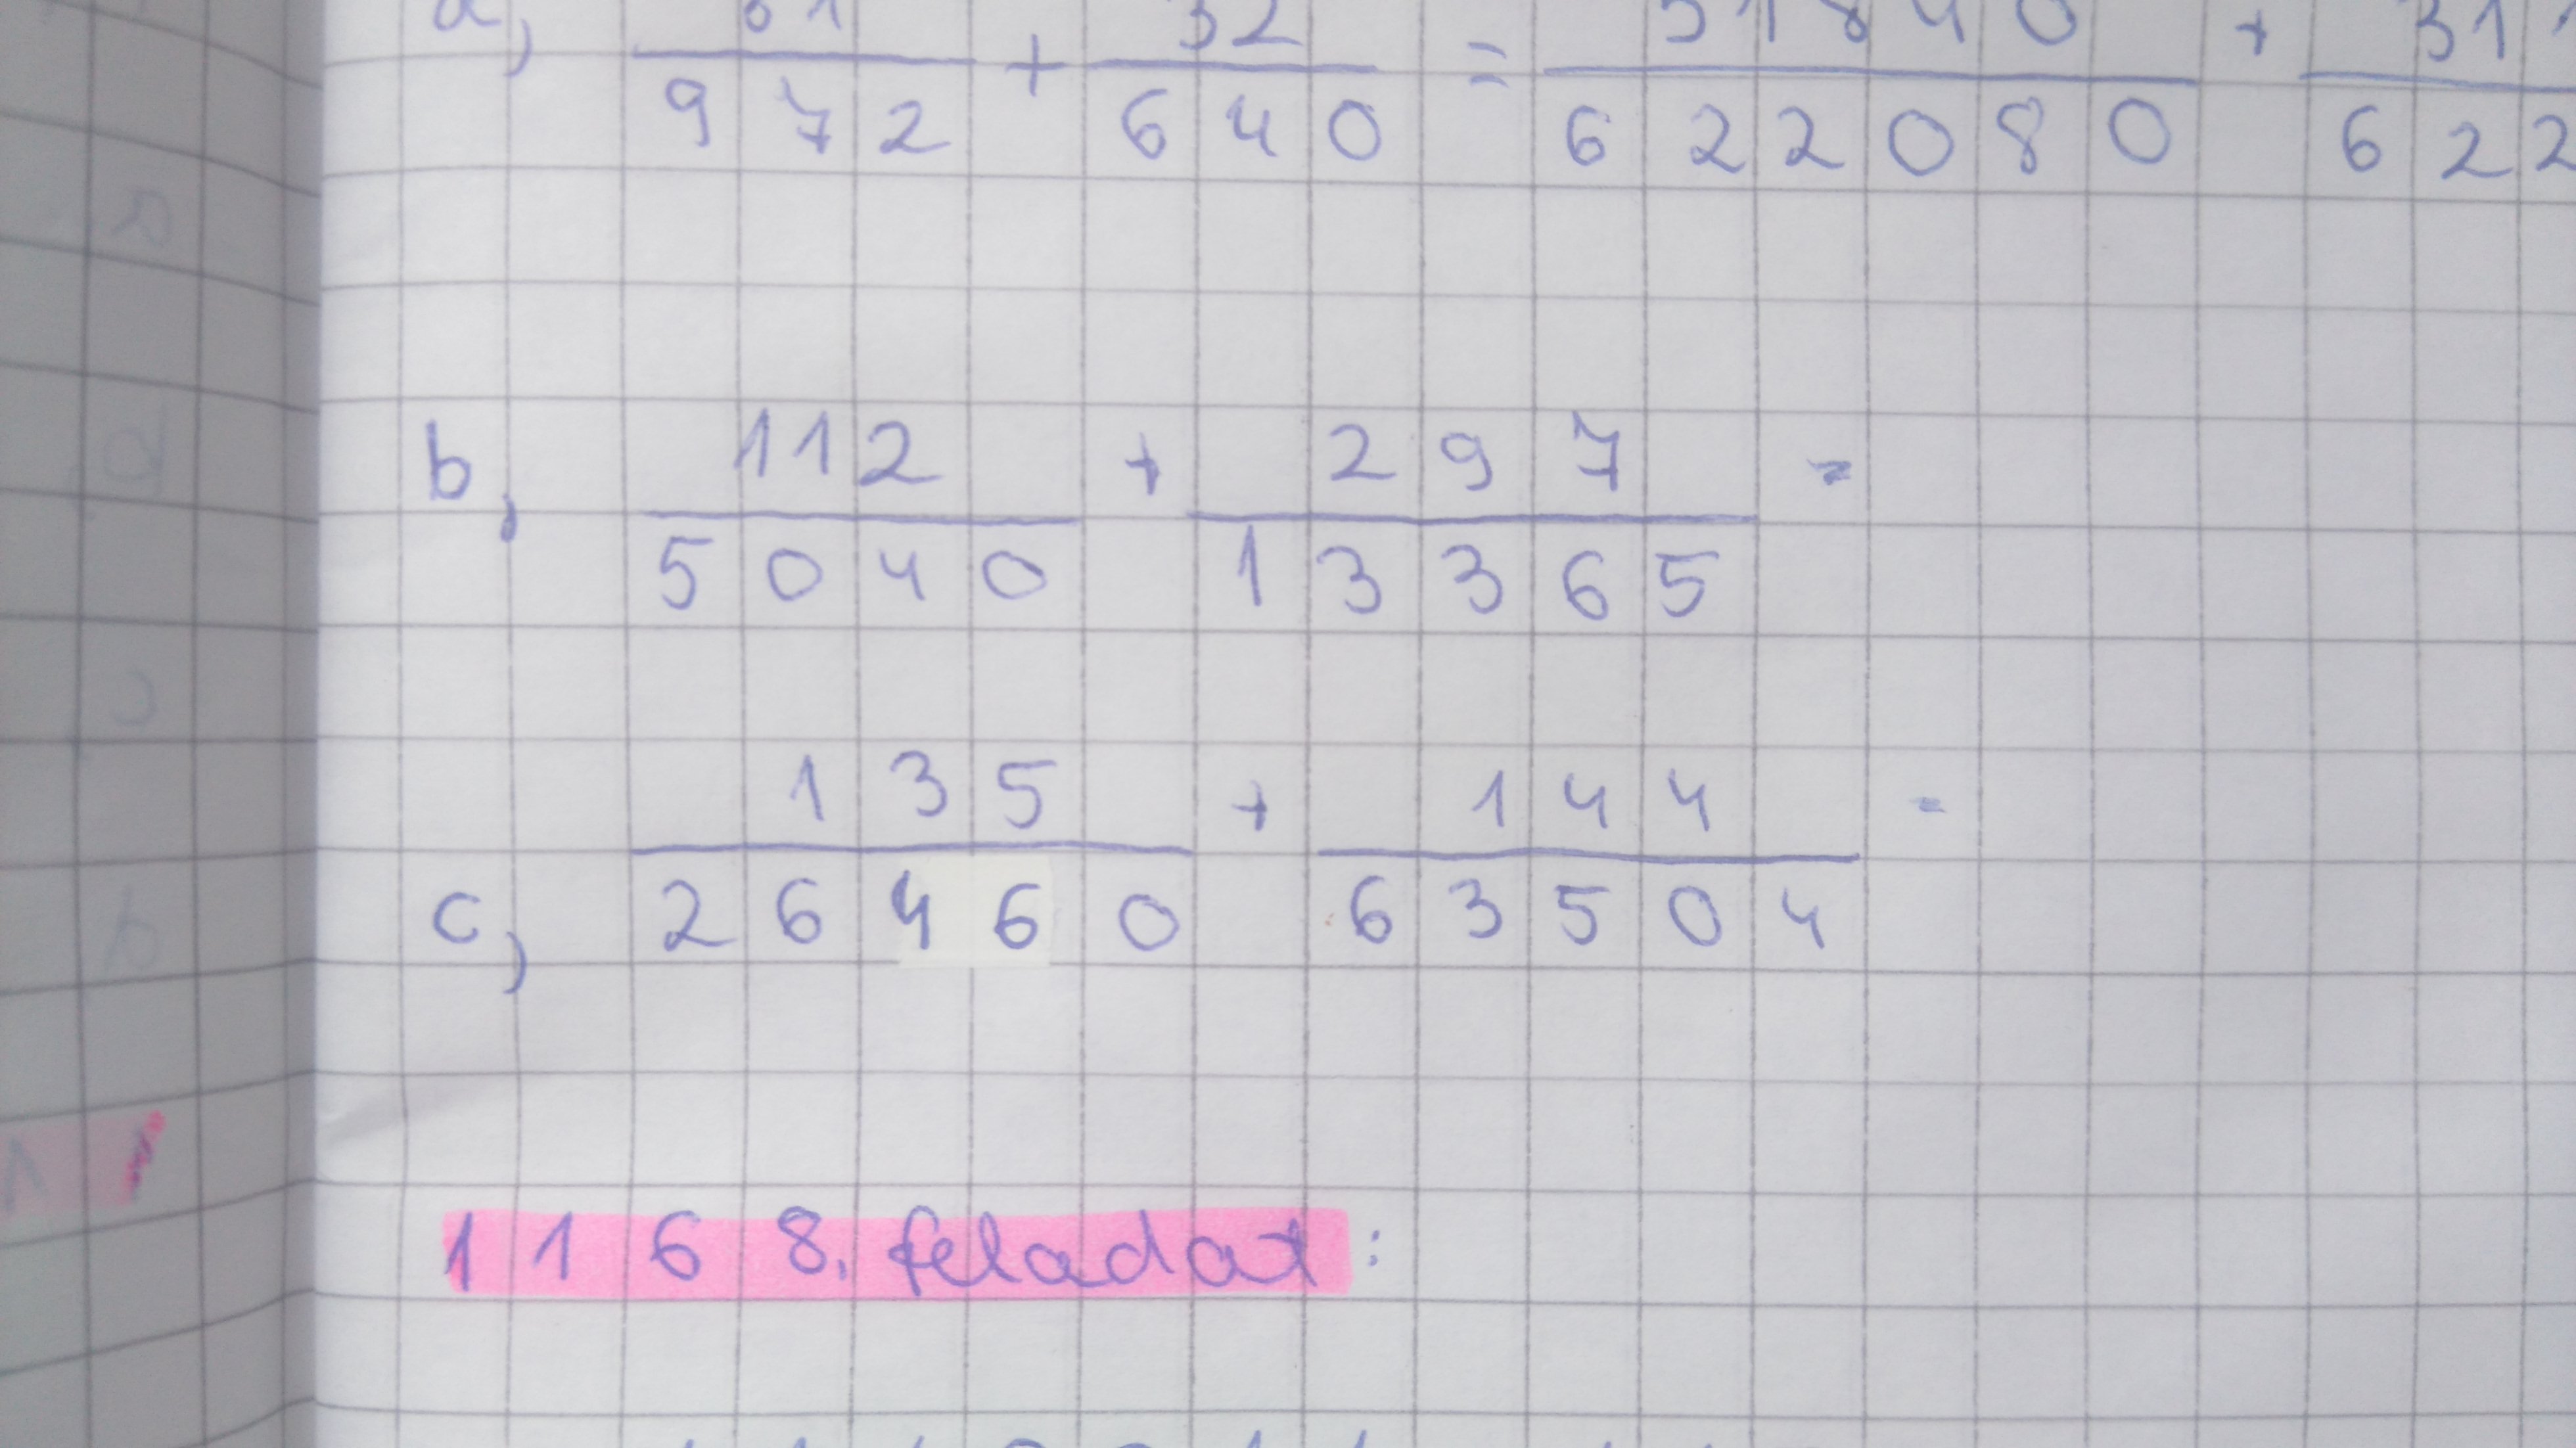 a, 81/972 + 32/640 = 51840/622080 + 31/622
b, 112/5040 + 297/13365 =
c, 135/26460 + 144/63504 =
1168. feladat: